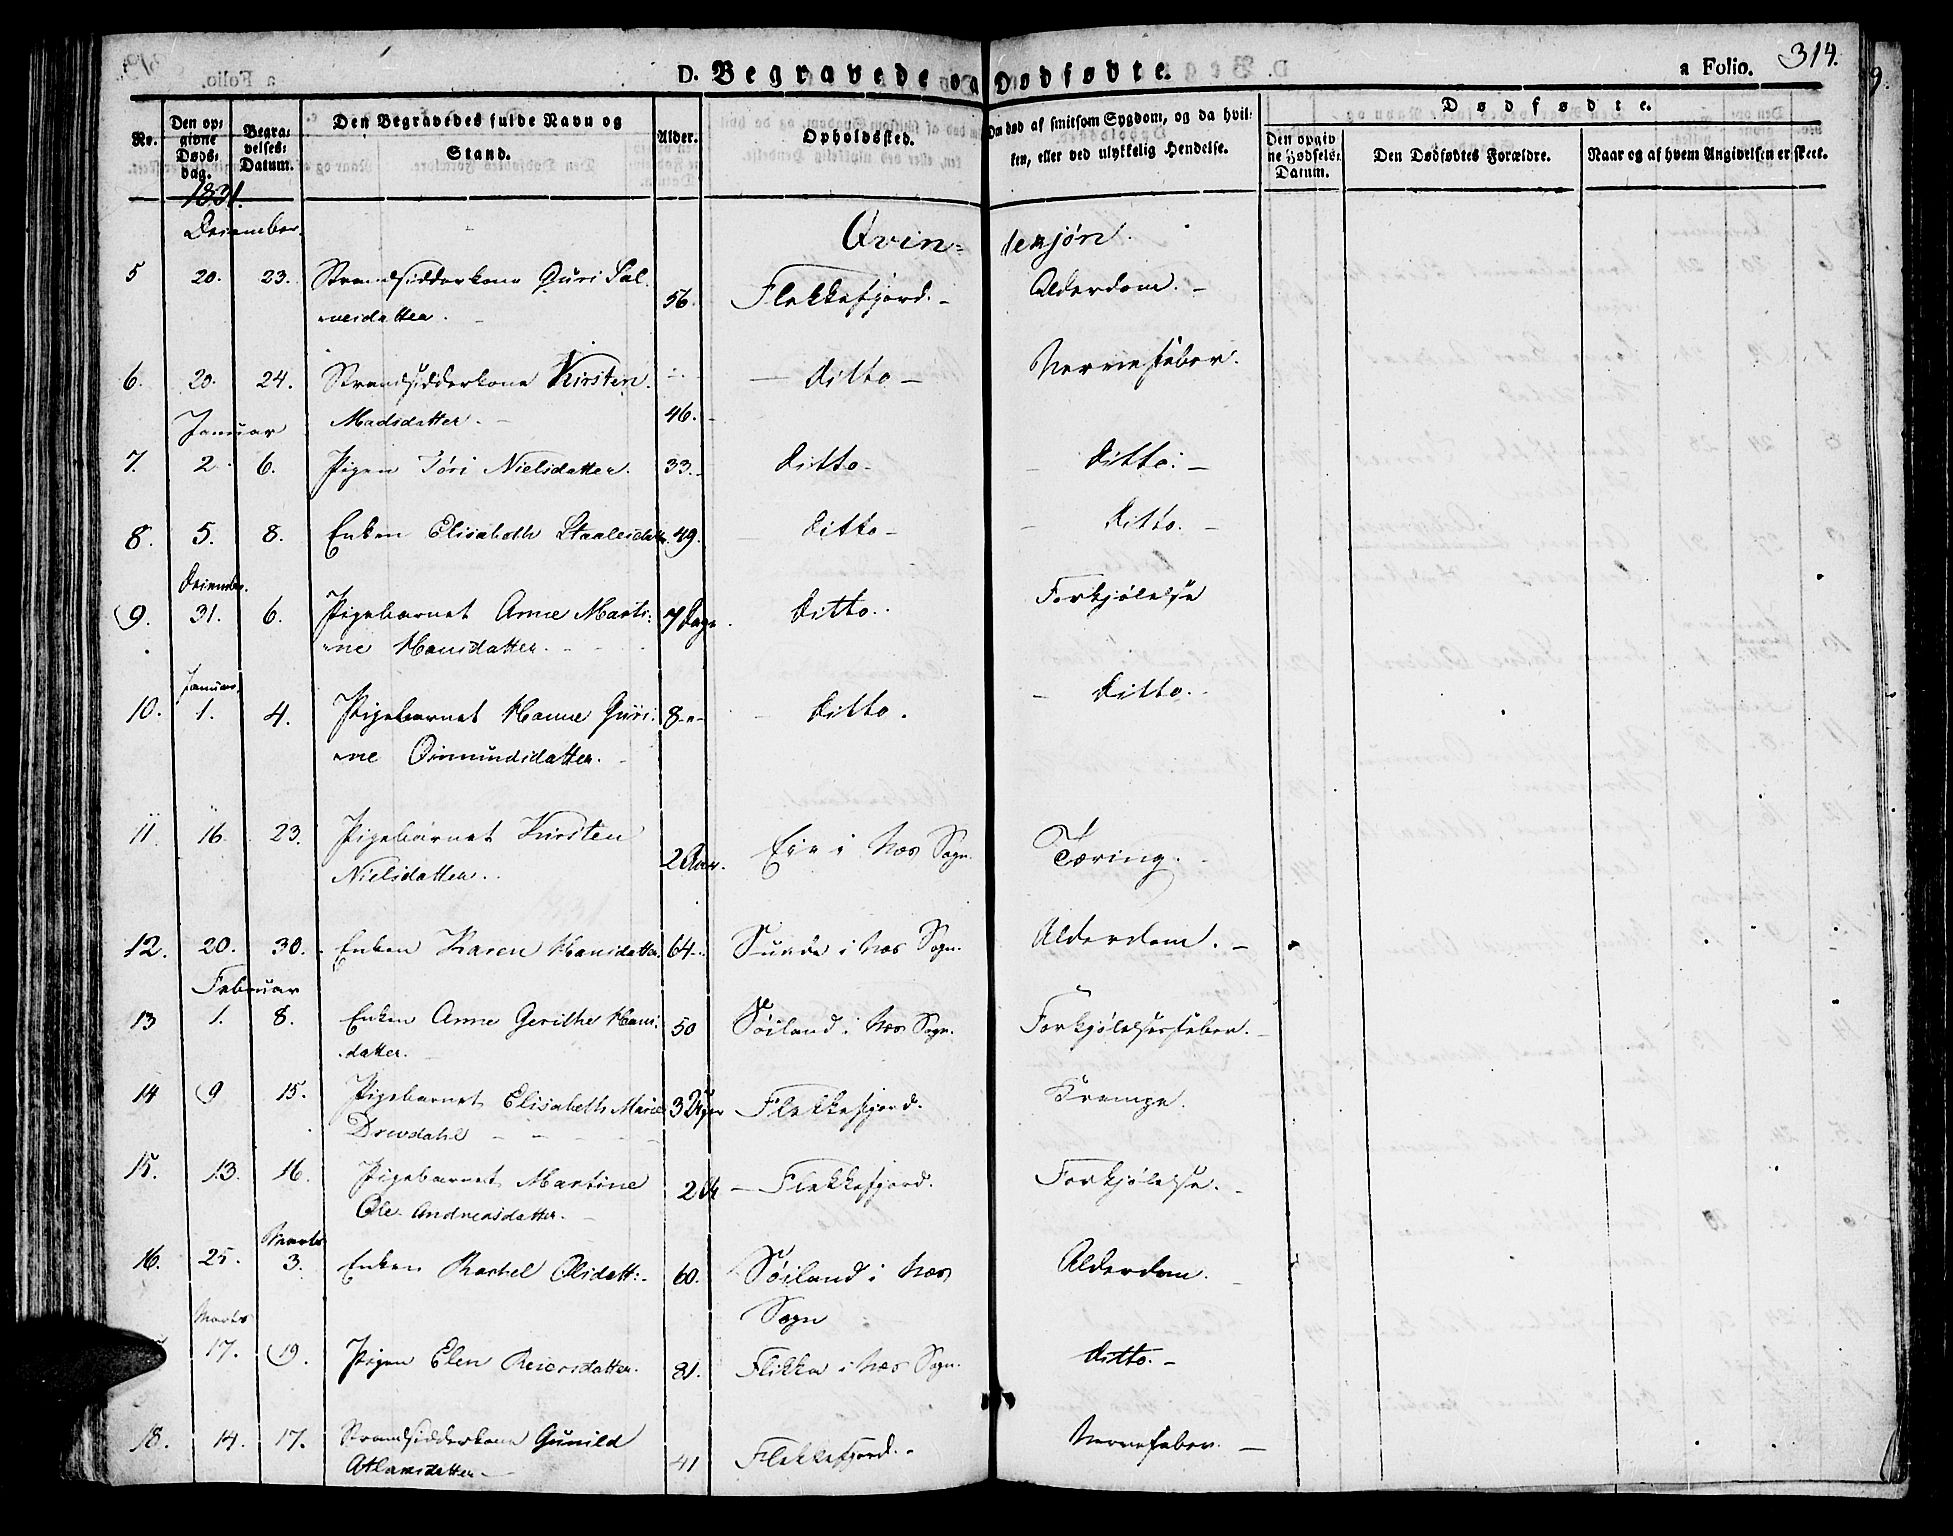 D. Begravede og Dødfødte.
a Folio. 314.
No. | Den opgivne Døds-dag. | Begravelses-Datum. | Den Begravedes fulde Navn og Stand. | Alder. | Opholdssted. | Om død af smitsom Sygdom, og da hvilken, eller ved ulykkelig Hendelse. | Dødfødte.
Den opgivne Fødsels-Datum. | Den Dødfødtes Forældre. | Naar og af hvem Angivelsen er skeet.
1831.
December. Qvin= dekjøn.
5 20. 23. Strandsidderkone Guri Sal-
nesdatter. 56. Flekkefjord. Alderdom.
6. 20. 24. Strandsidderkone Kirsten ditto Nervefeber.
Januar Madsdatter. 46.
7. 2. 6. Pigen Tøri Nielsdatter. 33. ditto ditto.
8. 5. 8. Enken Elisabeth Staalesdatter. 49. ditto ditto.
December.
9. 31. 6. Pigebarnet Anne Marti- 7 Dage ditto. Forkjølelse
ne Hansdatter.
Januar.
10. 1. 4. Pigebarnet Hanne Guri- 8 -"- ditto. ditto.
ne Osmundsdatter.
11 16. 23. Pigebarnet Kirsten
Nielsdatter. 2 Aar. Eie i Næs Sogn. Tæring.
12. 20. 30. Enken Karen Hansdatter 64 Sunde i Næs Sogn. Alderdom.
Februar
13 1. 8. Enken Anne Gerithe Hans- 50 Søiland i Næs Sogn. Forkjølelsesfeber.
datter.
14 9 15. Pigebarnet Elisabeth Marie 3 Uger Flekkefjord. Krampe.
Drevdahl
15. 13. 16. Pigebarnet Martine 2 Flekkefjord. Forkjølelse.
Ole Andreasdatter.
Marts
16. 25. 3. Enken Rachel Olsdatt: 60. Søiland i Næs Alderdom.
Sogn
Marts
17. 19. Pigen Elen Reiersdatter. 81. Flikka i Næs Sogn. ditto.
18. 14. 17. Strandsidderkone Gunild
Atlaksdatter 41 Flekkefjord. Nervefeber.